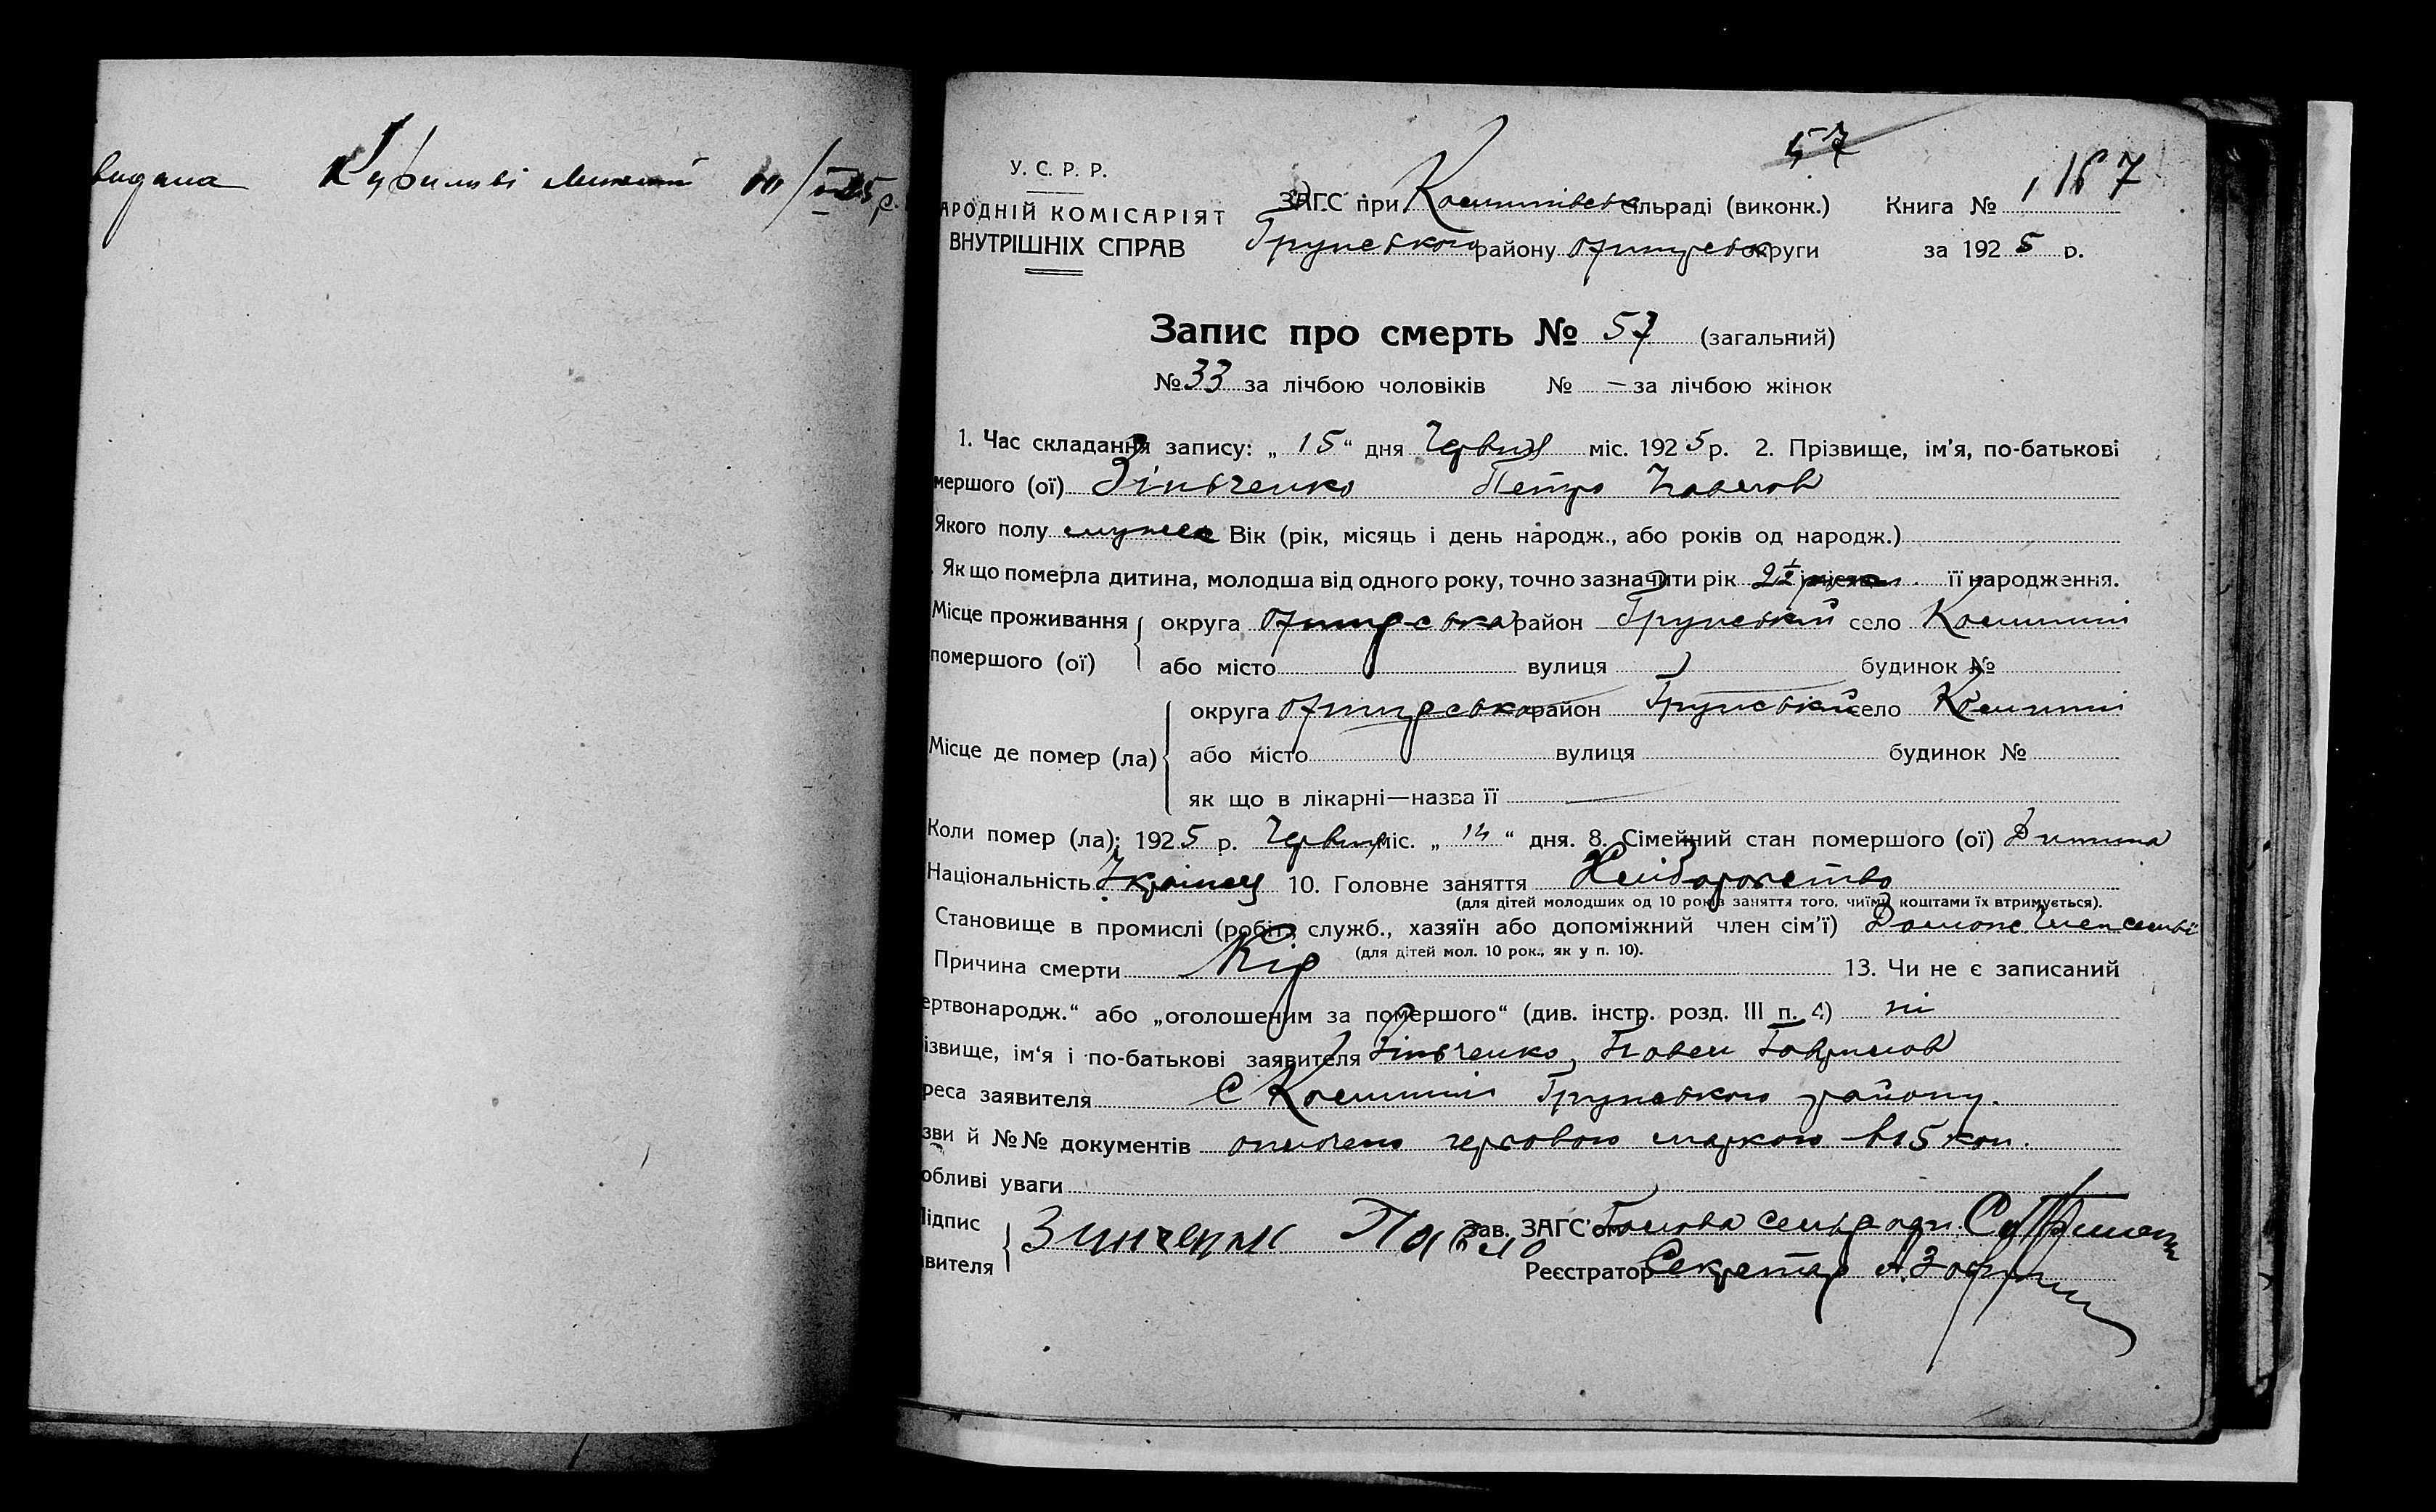 видана
57
У. С. Р. Р.
АРОДНІЙ КОМІСАРІЯТ
ВНУТРІШНІХ СПРАВ
ЗАГС при сільраді (виконк.)
Грунського району округи
Книга № 167
за 1925 р.
Запис про смерть № 57 (загальний)
№ 33 за лічбою чоловіків № — за лічбою жінок
1. Час складання запису: „ 15 “ дня Червня міс. 1925 р. 2. Прізвище, ім'я, по-батькові
мершого (ої) Зіньченко Петро Павлов
Якого полу мужеск Вік (рік, місяць і день народж., або років од народж.)
. Як що померла дитина, молодша від одного року, точно зазначити рік 2½ її народження.
Місце проживання округа район Грунський село
помершого (ої) або місто вулиця будинок №
округа район Грунський село
Місце де помер (ла) або місто вулиця будинок №
як що в лікарні—назва її
Коли помер (ла): 1925 р. Червня міс. „ 14 “ дня. 8. Сімейний стан помершого (ої) Дитина
Національність Українец 10. Головне заняття Хлиборобство
(для дітей молодших од 10 років заняття того, чиїми коштами їх втримується).
Становище в промислі (робітн. служб., хазяїн або допоміжний член сім'ї) Допоме член семьї
(для дітей мол. 10 рок., як у п. 10).
Причина смерти Кір 13. Чи не є записаний
ертвонародж.“ або „оголошеним за помершого“ (див. інстр. розд. III п. 4) ні
ізвище, ім'я і по-батькові заявителя Зіньченко, Павел Гаврилов
реса заявителя С Грунського району.
зви й №№ документів оплочено гербовою маркою в 15 коп.
обливі уваги
Підпис Зинченко Павло Зав. ЗАГС'ом Голова сельради
явителя Реєстратор Секретар